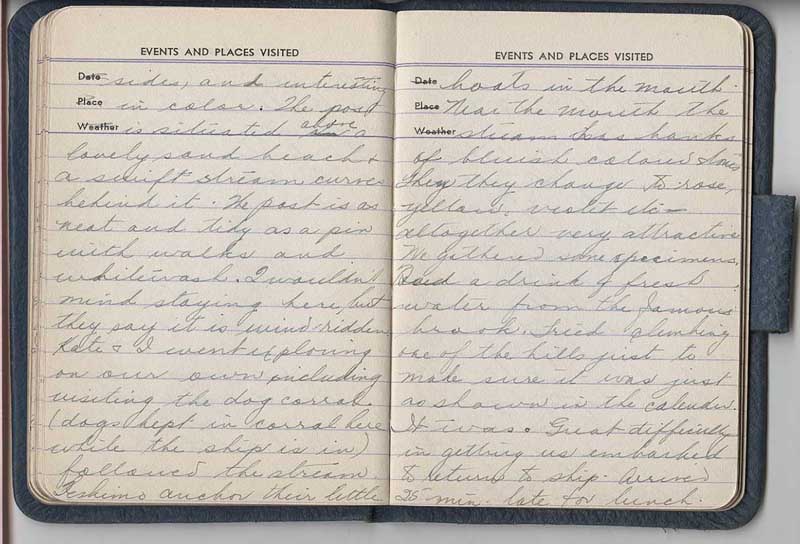 EVENTS AND PLACES VISITED
Date sides, and interesting
Place in color. The post
Weather is situated above a
lovely sand beach &
a swift stream curves
behind it. The post is as
neat and tidy as a pin
with walks and
whitewash. I wouldn't
mind staying here, but
they say it is wind-ridden
Kate & I went exploring
on our own including
visiting the dog corral
(dogs kept in corral here
while the ship is in)
followed the stream
Eskimo anchor their little
EVENTS AND PLACES VISITED
Date boats in the mouth.
Place Near the mouth the
Weather stream has banks
of bluish coloured stones
then they change to rose,
yellow, violet etc -
altogether very attractive
We gathered some specimens.
Had a drink of fresh
water from the famous
brook. Tried climbing
one of the hills just to
make sure it was just
as shown in the calendar.
It was. Great difficulty
in getting us embarked
to return to ship. Arrived
25 min. late for lunch.